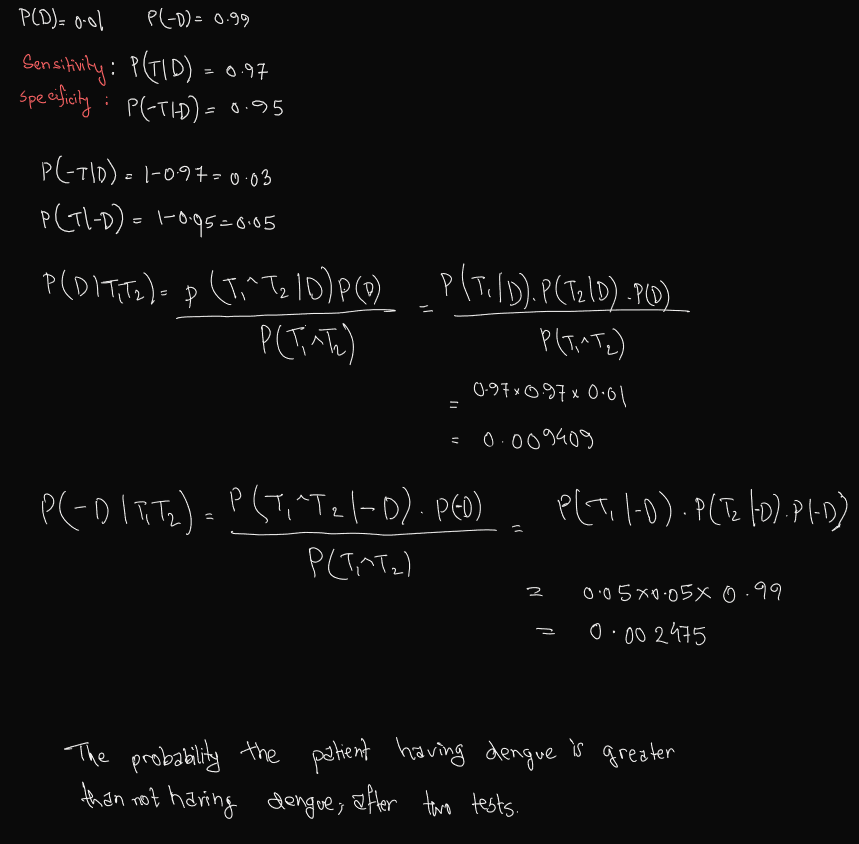 P(D)= 0.01 P(-D)= 0.99
Sensitivity : P(T|D) = 0.97
specificity : P(-T|-D) = 0.95
P(-T|D) = 1-0.97 = 0.03
P(T|-D) = 1-0.95=0.05
P(D|T₁T₂) = P(T₁^T₂|D)P(D) / P(T₁^T₂) = P(T₁|D).P(T₂|D).P(D) / P(T₁^T₂)
= 0.97×0.97×0.01
= 0.009409
P(-D|T₁T₂) = P(T₁^T₂|-D). P(-D) / P(T₁^T₂) = P(T₁|-D).P(T₂|-D).P(-D)
= 0.05×0.05×0.99
= 0.002475
The probability the patient having dengue is greater
than not having dengue, after two tests.